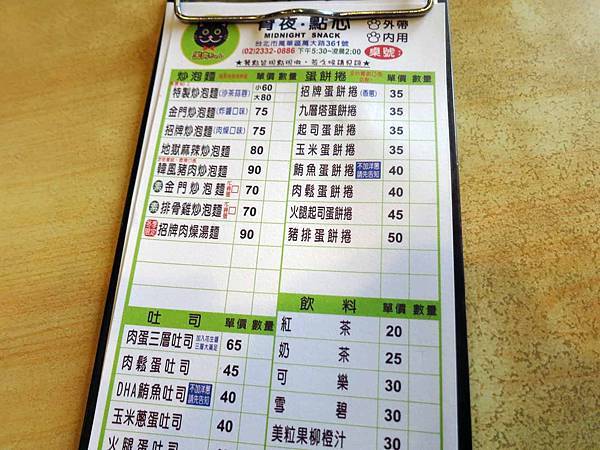 宵夜・點心
MIDNIGHT SNACK
外帶
內用
台北市萬華區萬大路361號
(02)2332-0886 下午5:30~凌晨2:00
桌號:
炒泡麵 單價 數量
特製炒泡麵(沙茶蒜蓉) 小60 大80
金門炒泡麵(炸醬口味) 75
招牌炒泡麵(肉燥口味) 75
地獄麻辣炒泡麵 80
韓風豬肉炒泡麵 90
金門炒泡麵 70
排骨雞炒泡麵 70
招牌肉燥湯麵 90
蛋餅捲 單價 數量
招牌蛋餅捲(香蔥) 35
九層塔蛋餅捲 35
起司蛋餅捲 35
玉米蛋餅捲 35
鮪魚蛋餅捲 不加洋蔥請先告知 40
肉鬆蛋餅捲 40
火腿起司蛋餅捲 45
豬排蛋餅捲 50
吐司 單價 數量
肉蛋三層吐司 加入花生醬三層大滿足 65
肉鬆蛋吐司 45
DHA鮪魚吐司 不加洋蔥請先告知 40
玉米蔥蛋吐司 40
火腿蛋吐司 40
飲料 單價 數量
紅茶 20
奶茶 25
可樂 30
雪碧 30
美粒果柳橙汁 30